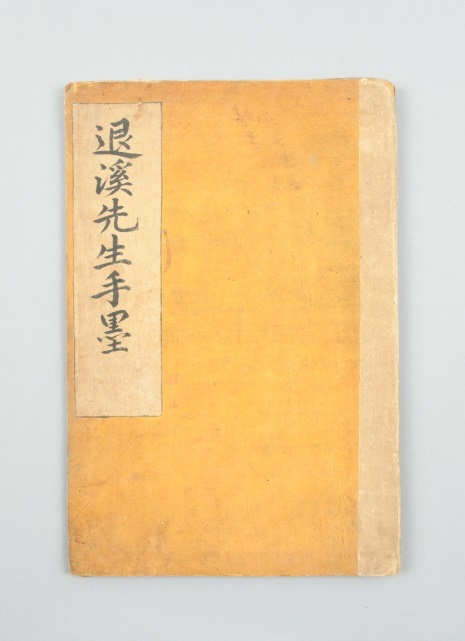 退溪先生手墨